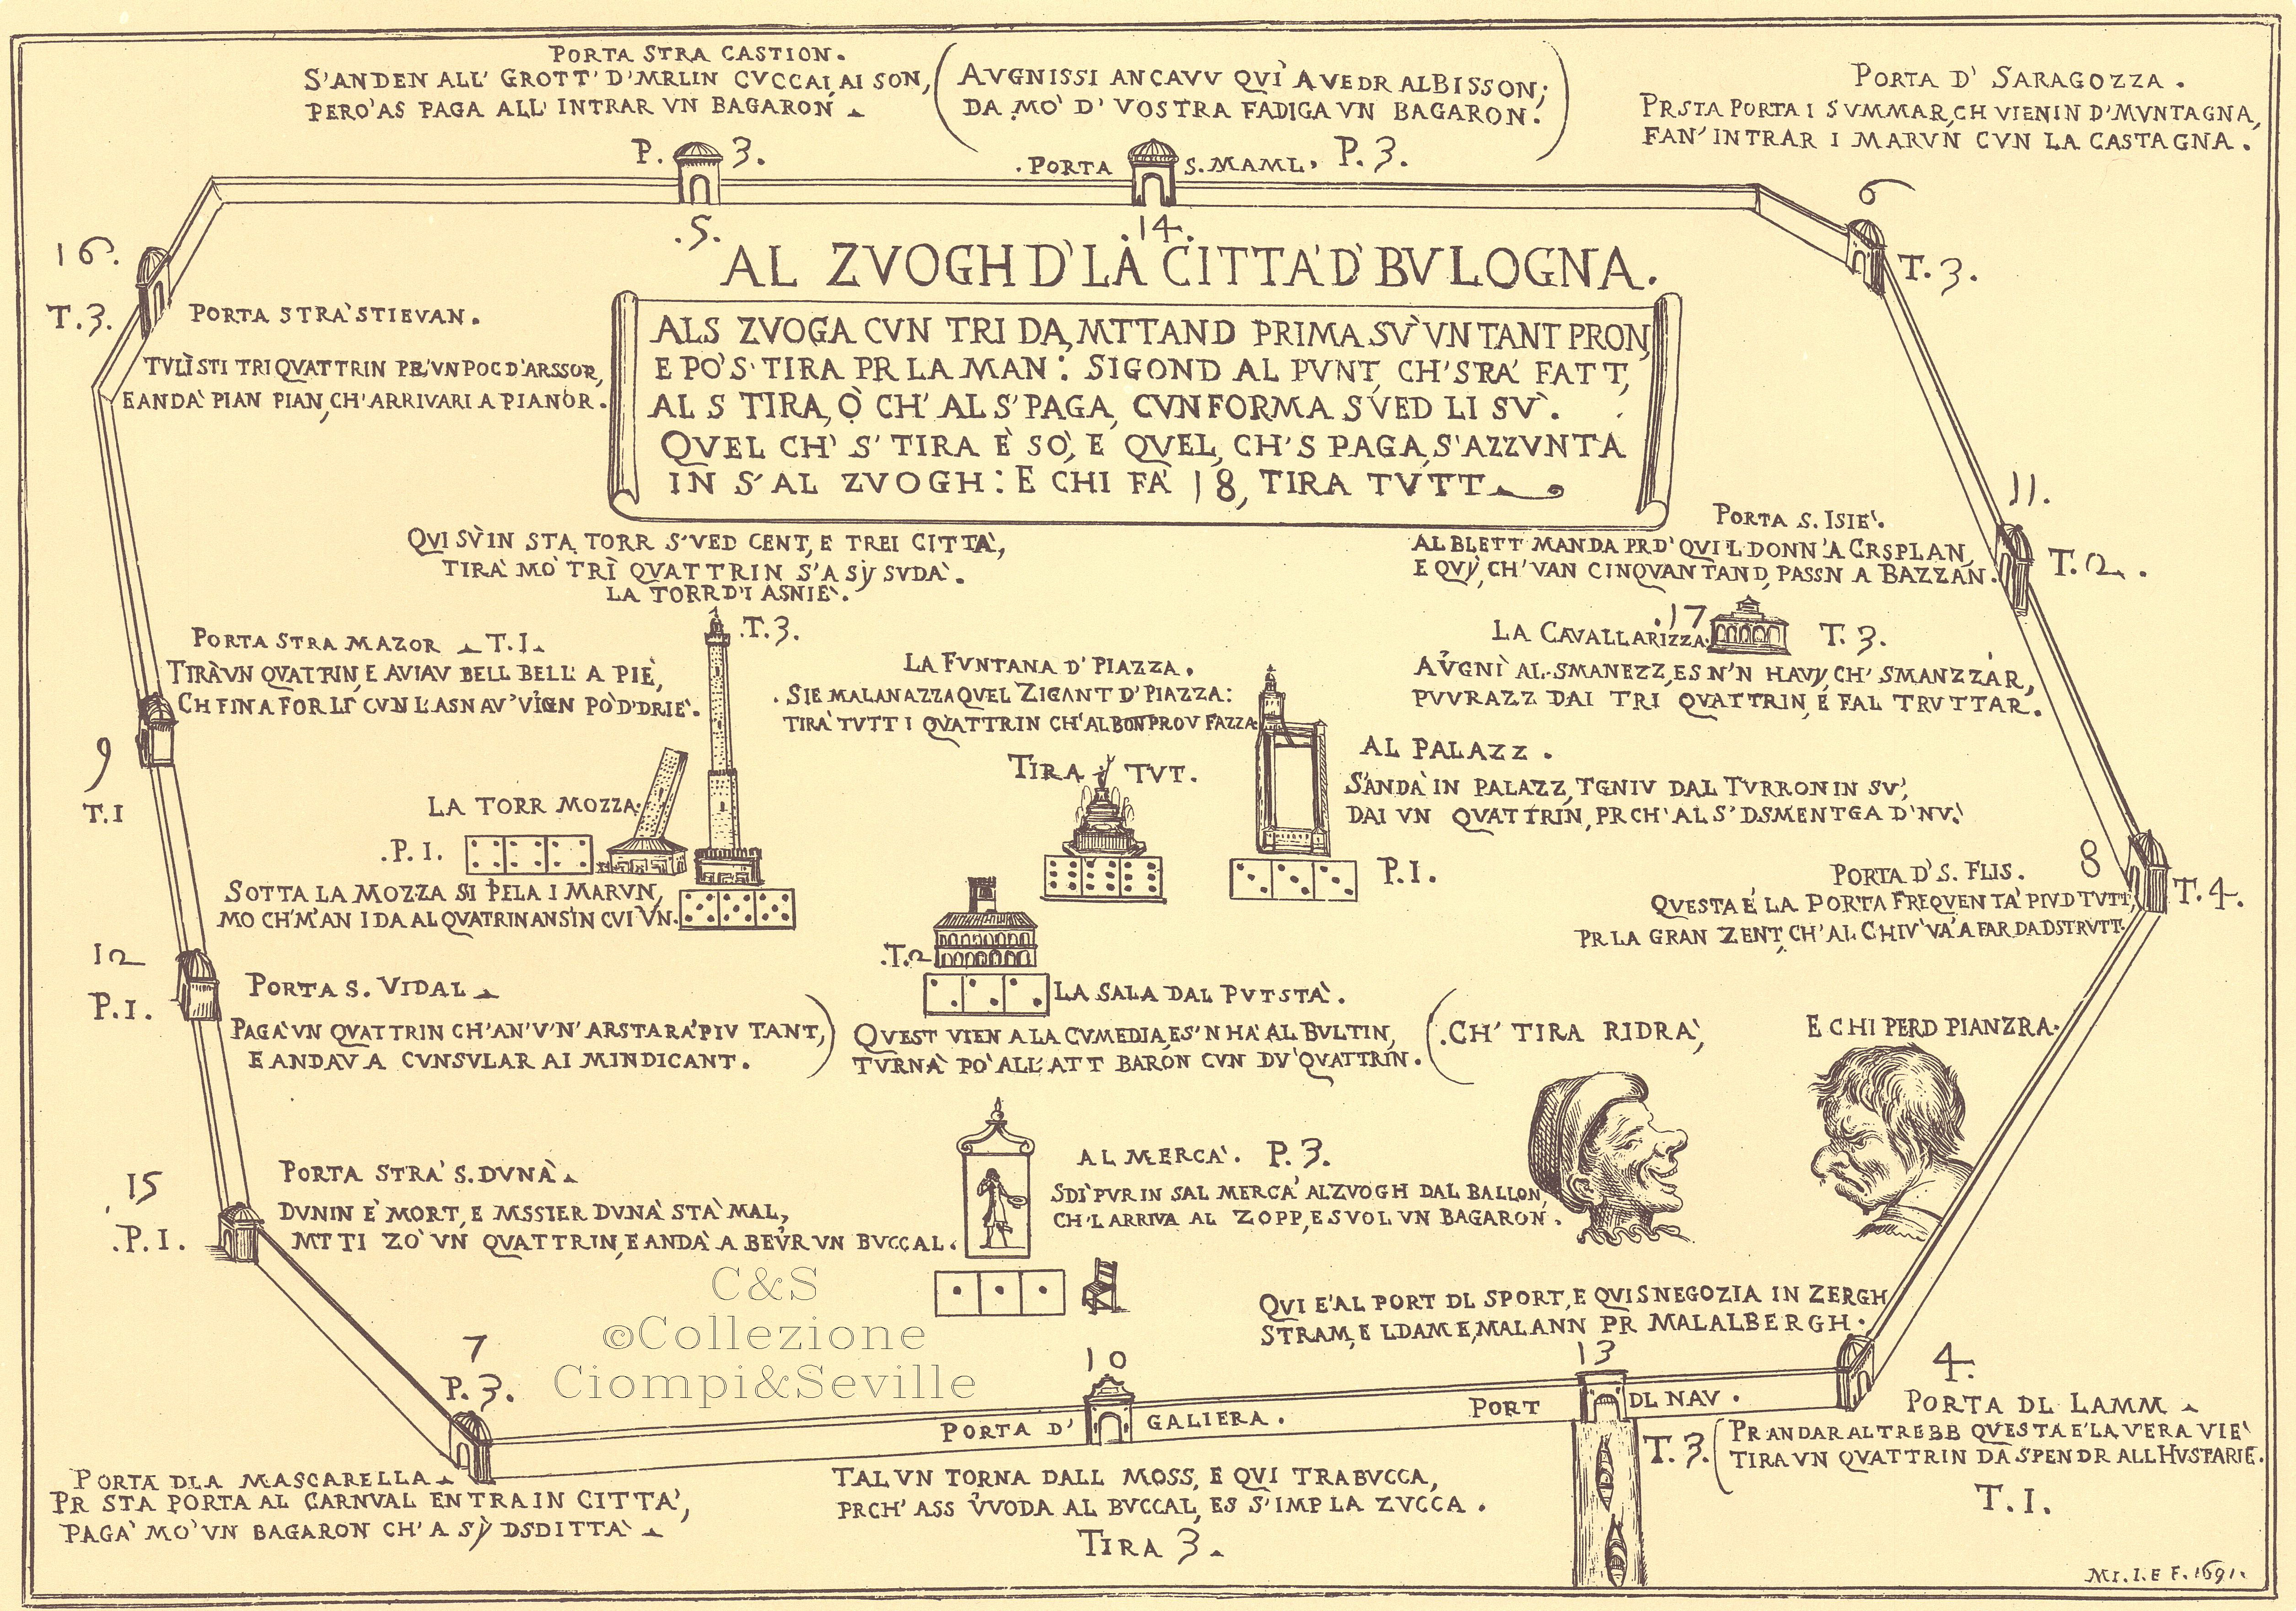 PORTA STRA CASTION.
S'ANDEN ALL' GROTT' D'MRLIN CVCCAI, AI SON,
PERO' AS PAGA ALL' INTRAR VN BAGARON
P. 3.
.5.
AVGNISSI ANCAVV QVÌ A VEDR AL BISSON;
DA MO' D' VOSTRA FADIGA VN BAGARON.
.PORTA S. MAML. P. 3.
.14.
PORTA D' SARAGOZZA.
PR STA PORTA I SVMMAR, CH VIENIN D'MVNTAGNA,
FAN' INTRAR I MARVN CVN LA CASTAGNA.
6
T. 3.
16.
T. 3.
PORTA STRA' STIEVAN.
TVLÌ STI TRI QVATTRIN PR' VN POC D'ARSSOR,
E ANDA' PIAN PIAN, CH' ARRIVARI A PIANOR.
AL ZVOGH D' LA CITTA' D' BVLOGNA.
ALS ZVOGA CVN TRI DA, MTTAND PRIMA SV' VN TANT PRON,
E PO' S' TIRA PR LA MAN: SIGOND AL PVNT, CH' SRA' FATT,
AL S TIRA, Ò CH' AL S' PAGA, CVNFORMA S VED LI SV'.
QVEL CH' S' TIRA È SÒ, E QVEL, CH'S PAGA, S'AZZVNTA
IN S' AL ZVOGH: E CHI FA' 18, TIRA TVTT
QVI SV' IN STA TORR S'VED CENT, E TREI CITTÀ,
TIRA' MO' TRÌ QVATTRIN S'A SY SVDA'.
LA TORR D'I ASNIE'.
.T. 3.
11.
T. 2.
PORTA S. ISIE'.
AL BLETT MANDA PR D' QVI L DONN' A CRSPLAN,
E QVY, CH' VAN CINQVANTAND, PASSN A BAZZAN.
.17
LA CAVALLARIZZA. T. 3.
AVGNÌ AL SMANEZZ, ES N'N HAVY, CH' SMANZZAR,
PVVRAZZ DAI TRI QVATTRIN, E FAL TRVTTAR.
PORTA STRA MAZOR T. I.
TIRA' VN QVATTRIN, E AVIAV BELL BELL A PIÈ,
CH FIN A FORLÌ CVN L'ASN AV' VIGN PÒ D'DRIE'.
9
T. I
LA FVNTANA D' PIAZZA.
SIE MALANAZZA QVEL ZIGANT D' PIAZZA:
TIRA' TVTT I QVATTRIN CH' AL BON PROV FAZZA
TIRA TVT.
AL PALAZZ.
S'ANDA' IN PALAZZ, TGNIV DAL TVRRON IN SV',
DAI VN QVATTRIN, PR CH' AL S' DSMENTGA D' NV.
P. I.
LA TORR MOZZA.
.P. I.
SOTTA LA MOZZA SI PELA I MARVN,
MO CH' M' AN I DA AL QVATRIN AN S'IN CVI VN.
PORTA D' S. FLIS.
8
T. 4.
QVESTA È LA PORTA FREQVENTA' PIV D TVTT,
PR LA GRAN ZENT, CH' AL CHIV' VA' A FAR DA DSTRVTT.
12
P. I.
PORTA S. VIDAL
PAGA' VN QVATTRIN CH' AN' V' N' ARSTARA' PIV TANT,
E ANDAV A CVNSVLAR AI MINDICANT.
.T. 2
LA SALA DAL PVTSTA'.
QVEST VIEN A LA CVMEDIA, ES' N HA' AL BVLTIN,
TVRNA' PO' ALL' ATT BARON CVN DV' QVATTRIN.
CH' TIRA RIDRA',
E CHI PERD PIANZRA.
15
.P. I.
PORTA STRA' S. DVNÀ
DVNIN E' MORT, E MSSIER DVNA' STA' MAL,
MTTI ZO' VN QVATTRIN, E ANDA' A BEVR VN BVCCAL.
AL MERCA'. P. 3.
SDI' PVR IN SAL MERCA' AL ZVOGH DAL BALLON,
CH' L ARRIVA AL ZOPP, E S VOL VN BAGARON.
C&S
©Collezione
Ciompi&Seville
QVI E' AL PORT DL SPORT, E QVI S NEGOZIA IN ZERGH
STRAM, E LDAME, MALANN PR MALALBERGH.
7
P. 3.
10
PORTA D' GALIERA.
13
PORT DL NAV.
T. 3.
4.
PORTA DL LAMM
PR ANDAR AL TREBB QVESTA E' LA VERA VIE'
TIRA VN QVATTRIN DA SPENDR ALL HVSTARIE.
T. I.
PORTA DLA MASCARELLA
PR STA PORTA AL CARNVAL ENTRA IN CITTA',
PAGA' MO' VN BAGARON CH' A SY DSDITTA'
TAL VN TORNA DALL MOSS, E QVI TRABVCCA,
PRCH' ASS VVODA AL BVCCAL, ES S'IMP LA ZVCCA.
TIRA 3.
MI. I. E F. 1691.